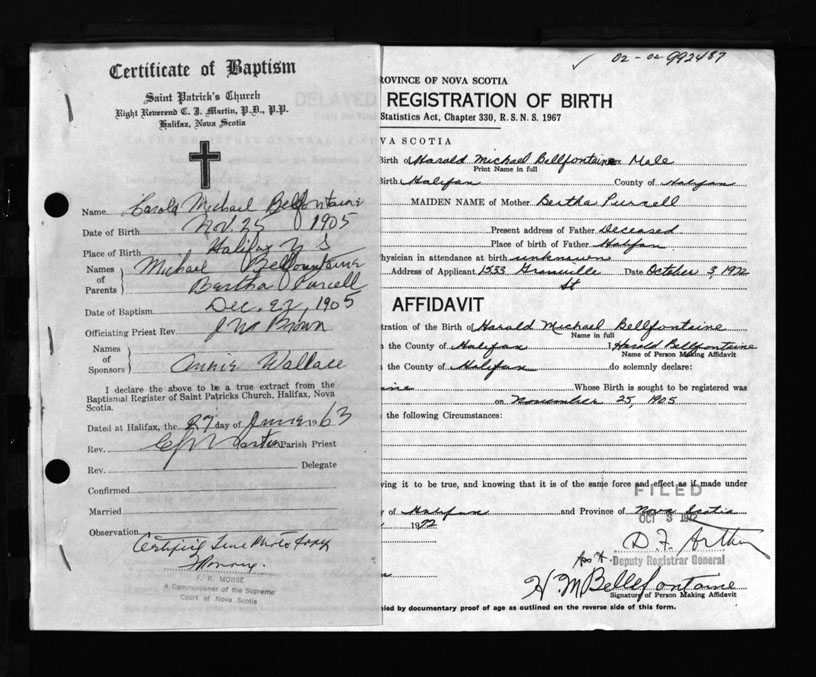 02-02-992487
Certificate of Baptism
Saint Patrick's Church
Right Reverend C. J. Martin, P.D., P.P.
Halifax, Nova Scotia
Name Harold Michael Bellfontaine
Date of Birth Nov. 25 1905
Place of Birth Halifax N S
Names of Parents Michael Bellfountaine
Bertha Purcell
Date of Baptism Dec. 27, 1905
Officiating Priest Rev. J Wm Brown
Names of Sponsors Annie Wallace
I declare the above to be a true extract from the
Baptismal Register of Saint Patricks Church, Halifax, Nova
Scotia.
Dated at Halifax, the 27 day of June 1963
Rev. C J Martin Parish Priest
Rev. Delegate
Confirmed
Married
Observation
Certified True Photo Copy
F. R. MORSE
A Commissioner of the Supreme
Court of Nova Scotia
ROVINCE OF NOVA SCOTIA
DELAYED REGISTRATION OF BIRTH
Statistics Act, Chapter 330, R. S. N. S. 1967
VA SCOTIA
Birth of Harold Michael Bellfontaine Male
Print Name in full
Birth Halifax County of Halifax
MAIDEN NAME of Mother Bertha Purcell
Present address of Father Deceased
Place of birth of Father Halifax
hysician in attendance at birth unknown
Address of Applicant 1533 Granville St Date October 3, 1972
AFFIDAVIT
tration of the Birth of Harald Michael Bellfontaine
Name in full
n the County of Halifax I, Harold Bellfontaine
Name of Person Making Affidavit
n the County of Halifax do solemnly declare:
aine Whose Birth is sought to be registered was
on November 25, 1905
the following Circumstances:
ving it to be true, and knowing that it is of the same force and effect as if made under
y of Halifax and Province of Nova Scotia
1972
FILED
OCT 3 1972
D. F. Arthur
Deputy Registrar General
H M Bellefontaine
Signature of Person Making Affidavit
nied by documentary proof of age as outlined on the reverse side of this form.